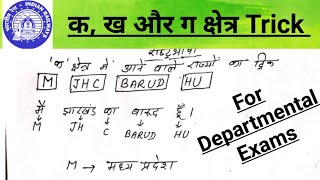 क, ख और ग क्षेत्र Trick
राजभाषा
'क' क्षेत्र में आने वाले राज्यों का ट्रिक
M JHC BARUD HU
मैं झारखंड का बारूद हूँ।
M JH C BARUD HU
M → मध्य प्रदेश
For
Departmental
Exams